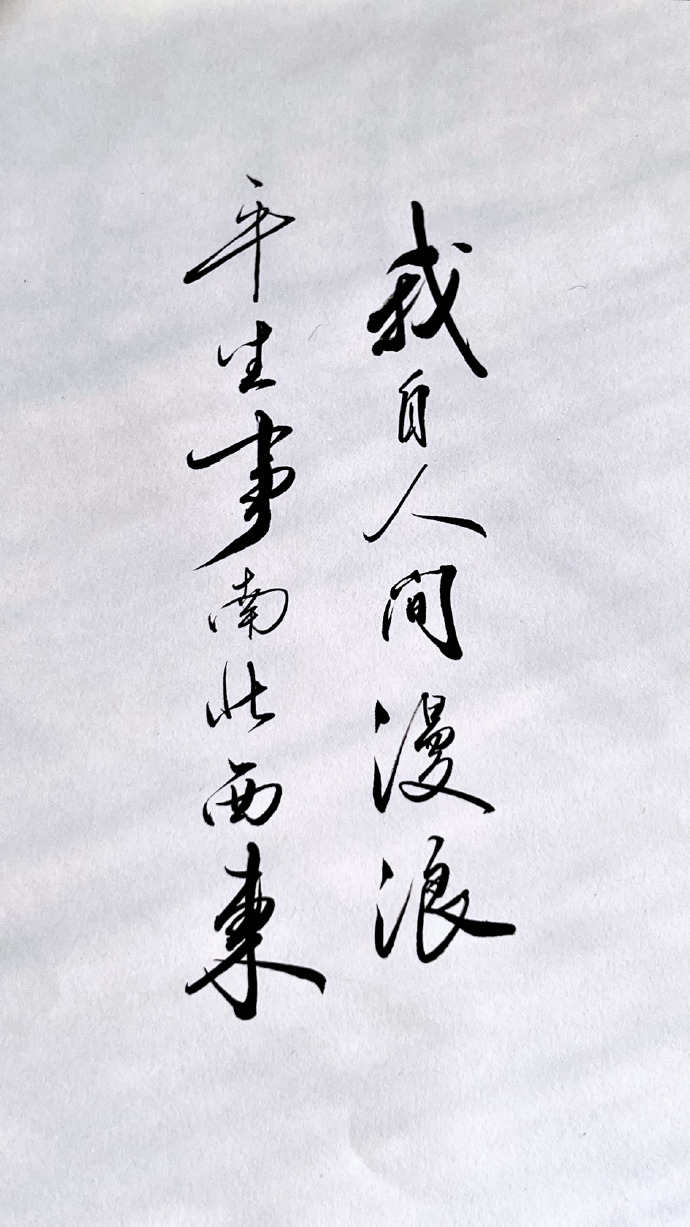 我自人间漫浪
平生事南北西東